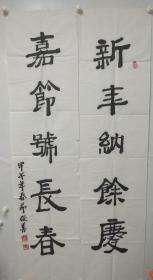 新年納餘慶
嘉節號長春
甲午年春節